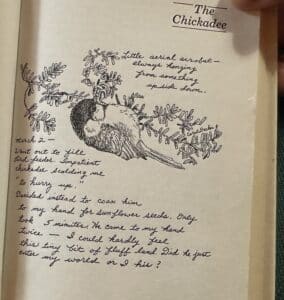 The
Chickadee
Little aerial acrobat —
always hanging
from something
upside down.
March 2 —
Went out to fill
bird feeder. Impatient
chickadee scolding me
"to hurry up."
Decided instead to coax him
to my hand for sunflower seeds. Only
took 5 minutes. He came to my hand
twice — I could hardly feel
this tiny bit of fluff land. Did he just
enter my world or I his?